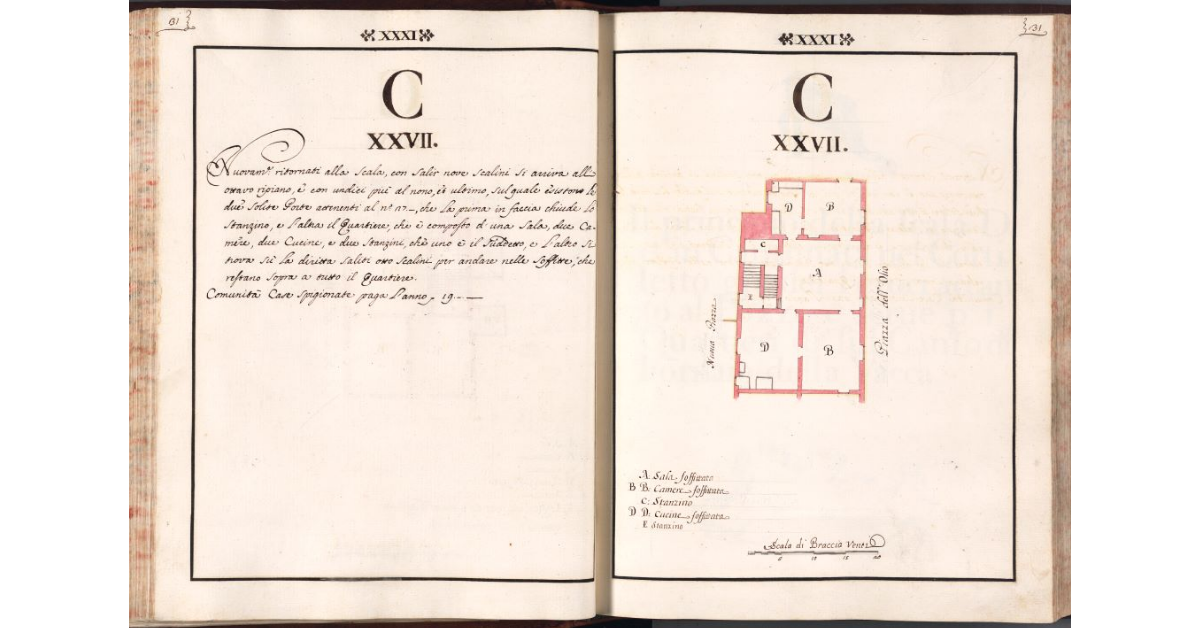 31
XXXI
C
XXVII.
Nuovamᵉ. ritornati alla Scala, con salir nove Scalini si arriva all'
ottavo ripiano, e con undici più al nono, et ultimo, sul quale esistono le
due solite Porte attenenti al nº. 17., che la prima in faccia chiude lo
Stanzino, e l'altra il Quartiere, che è composto d'una Sala, due Ca-
mere, due Cucine, e due Stanzini, che uno è il suddetto, e l'altro si
trova sù la diritta saliti otto Scalini per andare nelle Soffitte, che
restano sopra a tutto il Quartiere.
Comunità Case Spigionate paga l'anno 19.
31
XXXI
C
XXVII.
D
B
C
A
E
D
B
Piazza dell'Olio
A. Sala soffittata
B B. Camere soffittate
C. Stanzino
D D. Cucine soffittata
E Stanzino
Scala di Braccia Venti
5 10 15 20